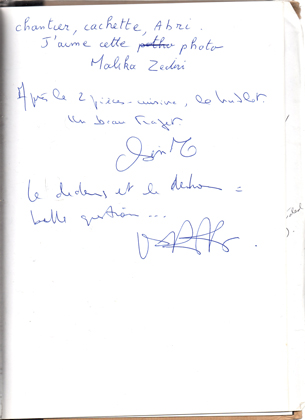 chantier, cachette, Abri.
J'aime cette photo
Malika Zediri
Après le 2 pièces-cuisine, le
Un beau trajet.
Le dedans et le dehors =
belle question...